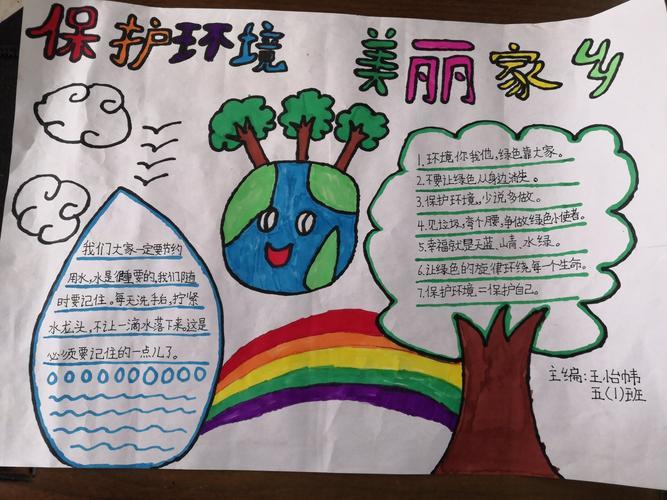 保护环境 美丽家乡
我们大家一定要节约
用水,水是很重要的,我们随
时要记住。每天洗手台,拧紧
水龙头,不让一滴水落下来。这是
必须要记住的一点儿了。
1.环境你我他,绿色靠大家。
2.不要让绿色从身边流失。
3.保护环境。少说多做。
4.见垃圾,弯个腰,争做绿色小使者。
5.幸福就是天蓝、山青、水绿。
6.让绿色的旋律环绕每一个生命。
7.保护环境=保护自己。
主编:王怡帏
五(1)班